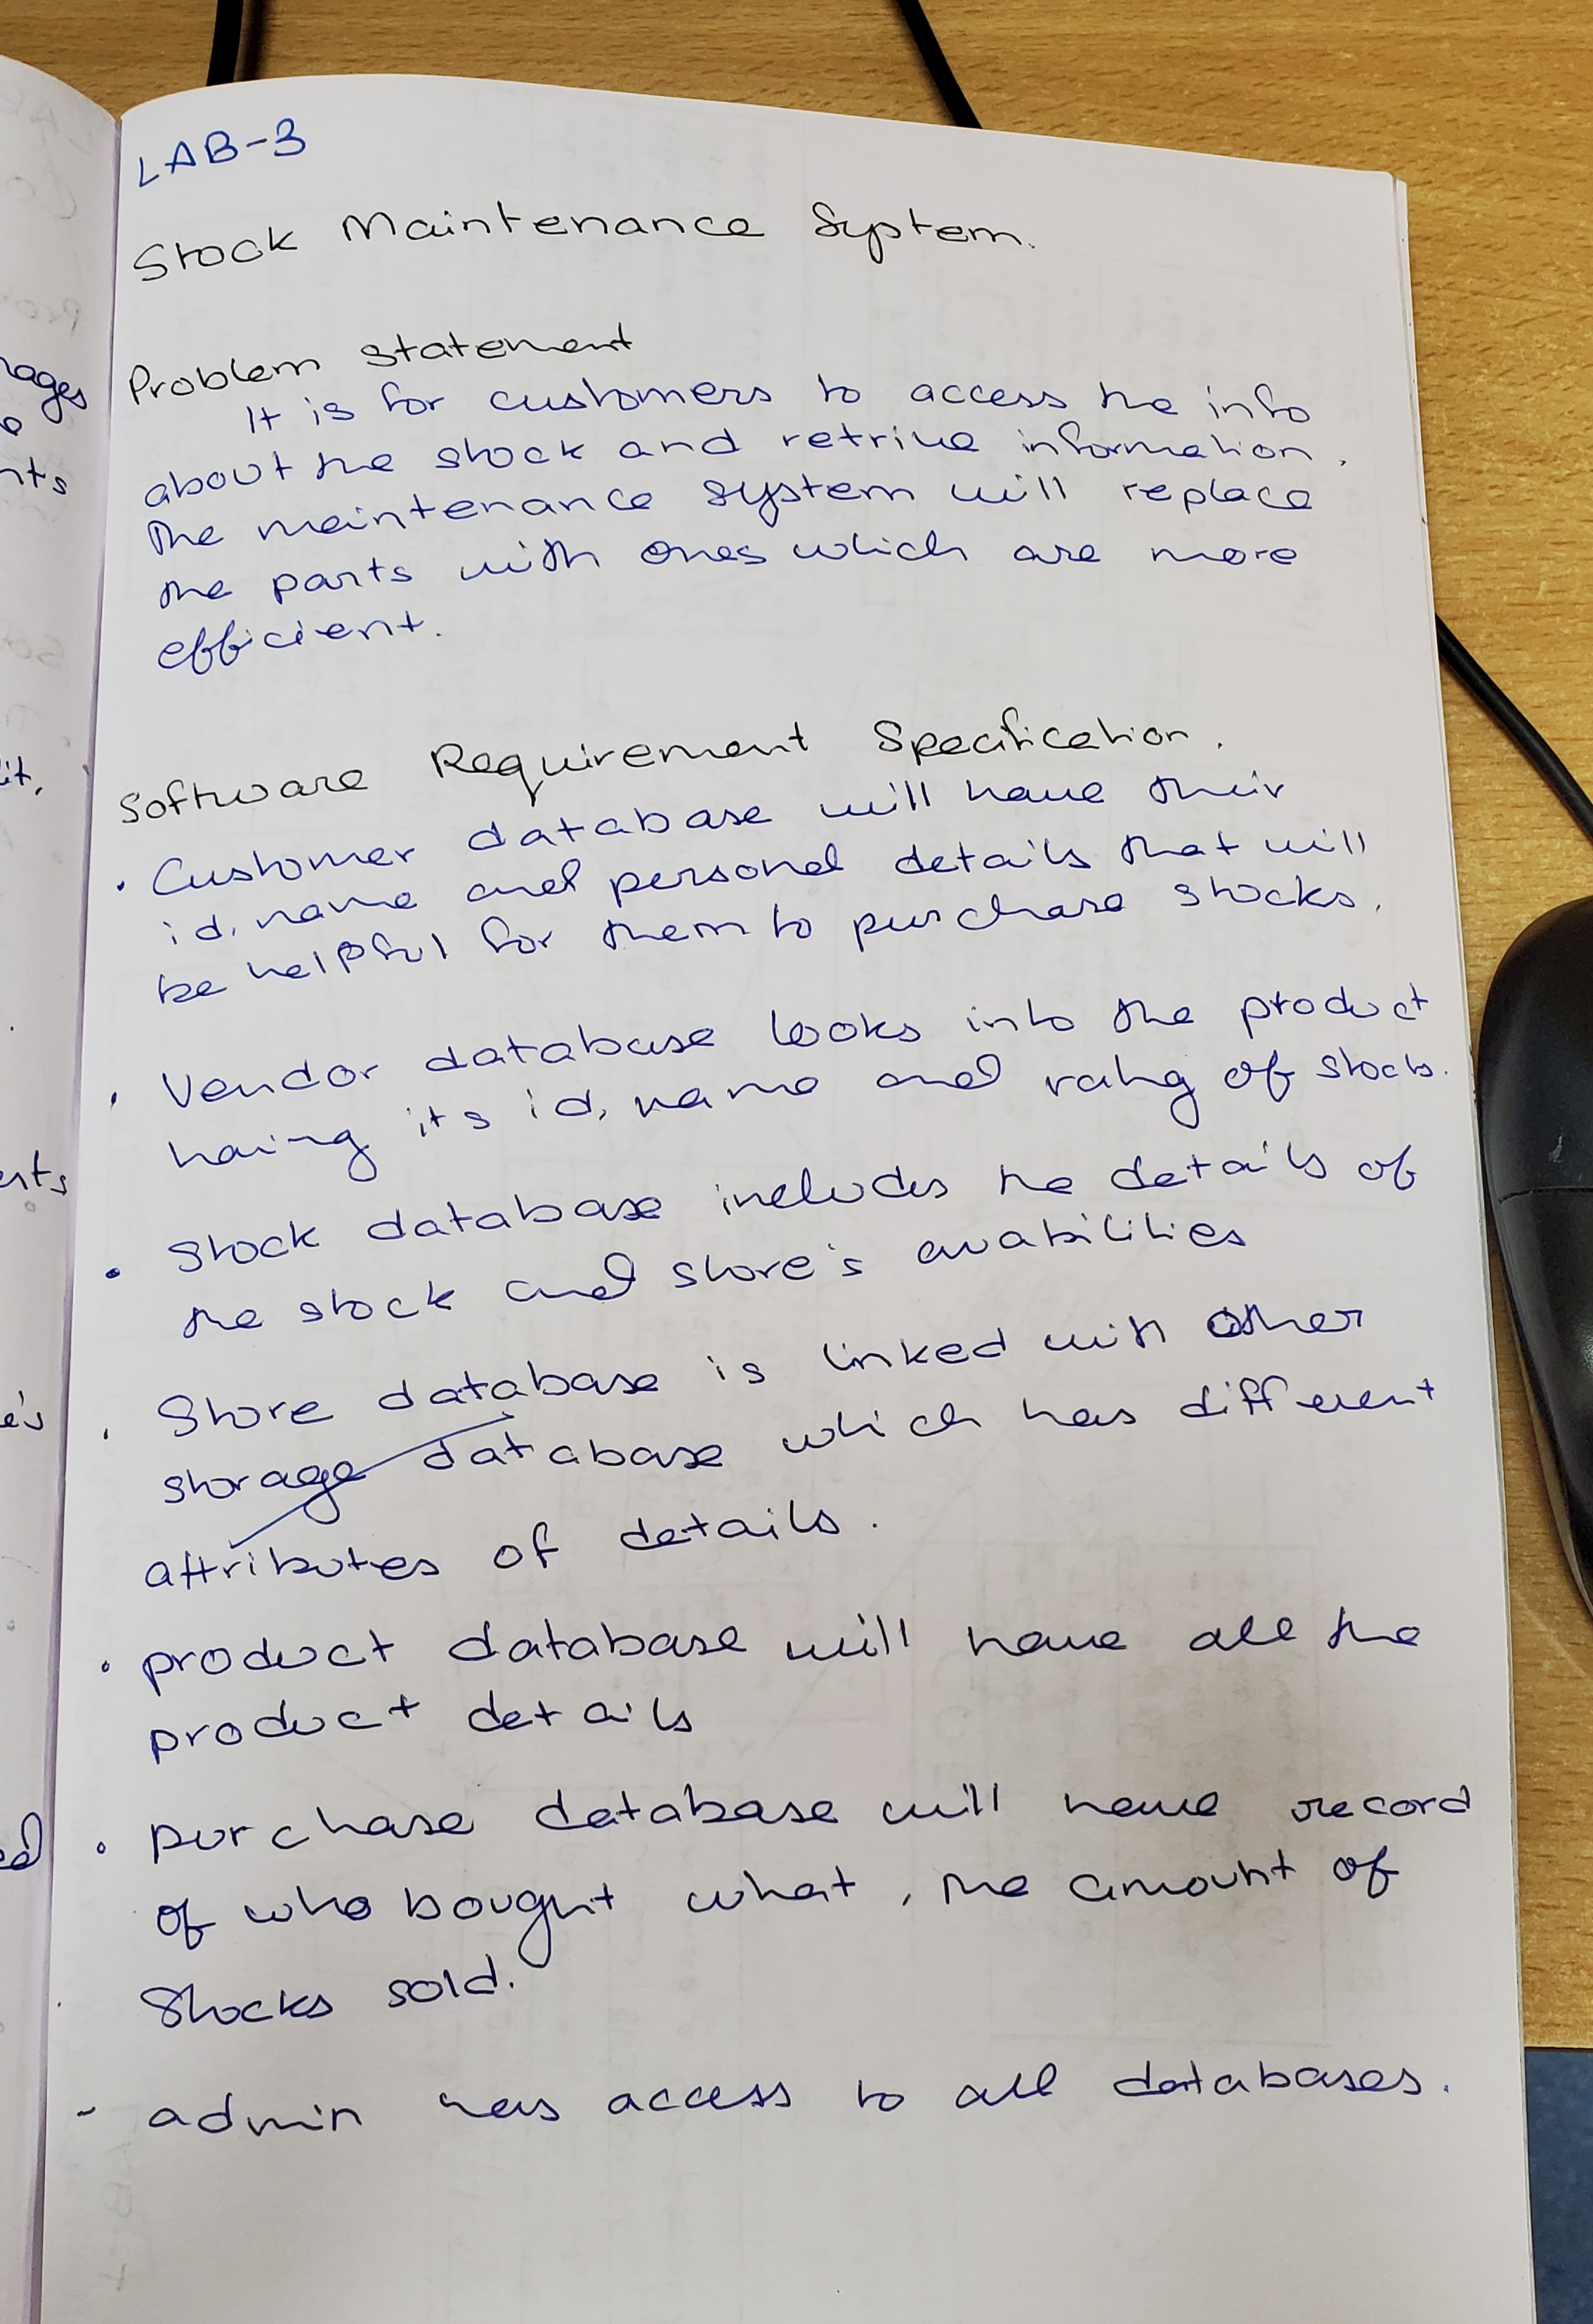 LAB-3
Stock Maintenance System.
Problem statement
It is for customers to access the info
about the stock and retrive information.
The maintenance system will replace
the parts with ones which are more
efficient.
Software Requirement Specification.
• Customer database will have their
id, name and personal details that will
be helpful for them to purchase stocks.
• Vendor database looks into the product
having its id, name and rating of stocks.
• Stock database includes the details of
the stock and store's avabilities
• Store database is linked with other
storage database which has different
attributes of details.
• product database will have all the
product details
• purchase database will have record
of who bought what, the amount of
Stocks sold.
- admin has access to all databases.
nages
nts
it,